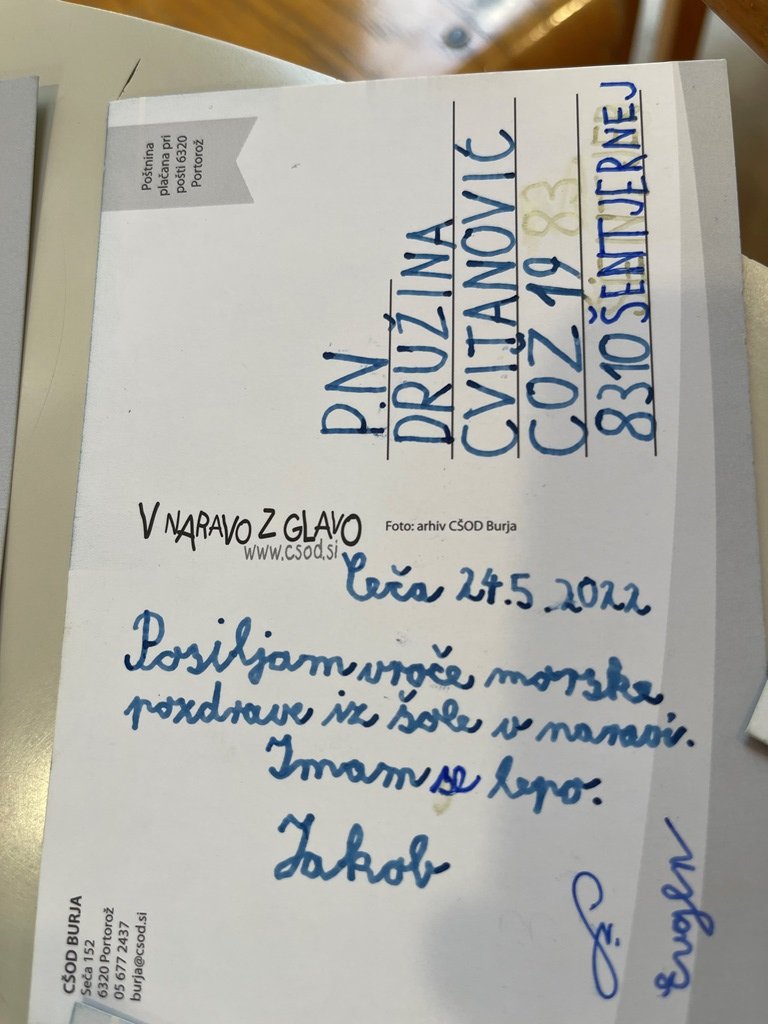 Poštnina
plačana pri
pošti 6320
Portorož
P.N
DRUŽINA
CVITANOVIĆ
COZ 19
8310 ŠENTJERNEJ
V NARAVO Z GLAVO
www.csod.si
Foto: arhiv CŠOD Burja
Seča 24.5.2022
Posiljam vroče morske
pozdrave iz šole v naravi.
Imam se lepo.
Jakob
Evgen
CŠOD BURJA
Seča 152
6320 Portorož
05 677 2437
burja@csod.si